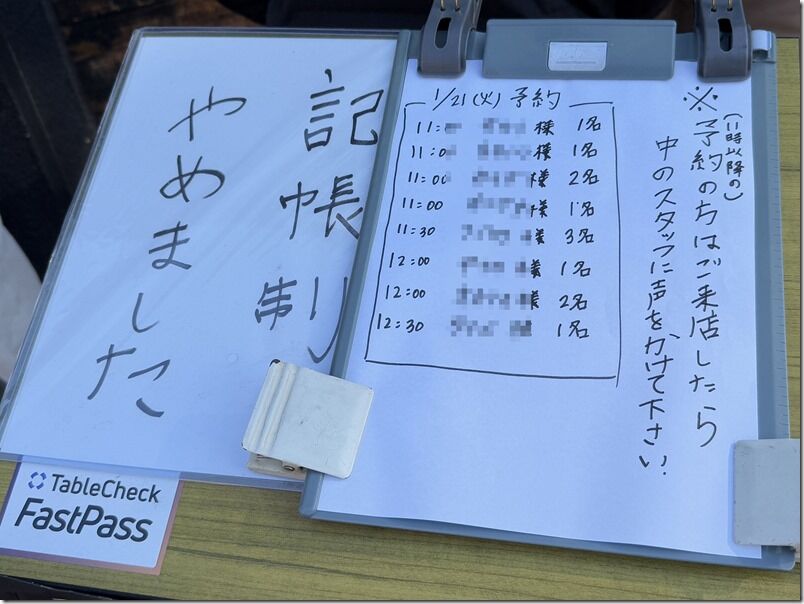 記帳制
やめました
1/21(火)予約
11: 様 1名
11:0 様 1名
11:00 様 2名
11:00 様 1名
11:30 様 3名
12:00 様 1名
12:00 様 2名
12:30 1名
(11時以降の)
※予約の方はご来店したら
中のスタッフに声をかけて下さい.
TableCheck
FastPass